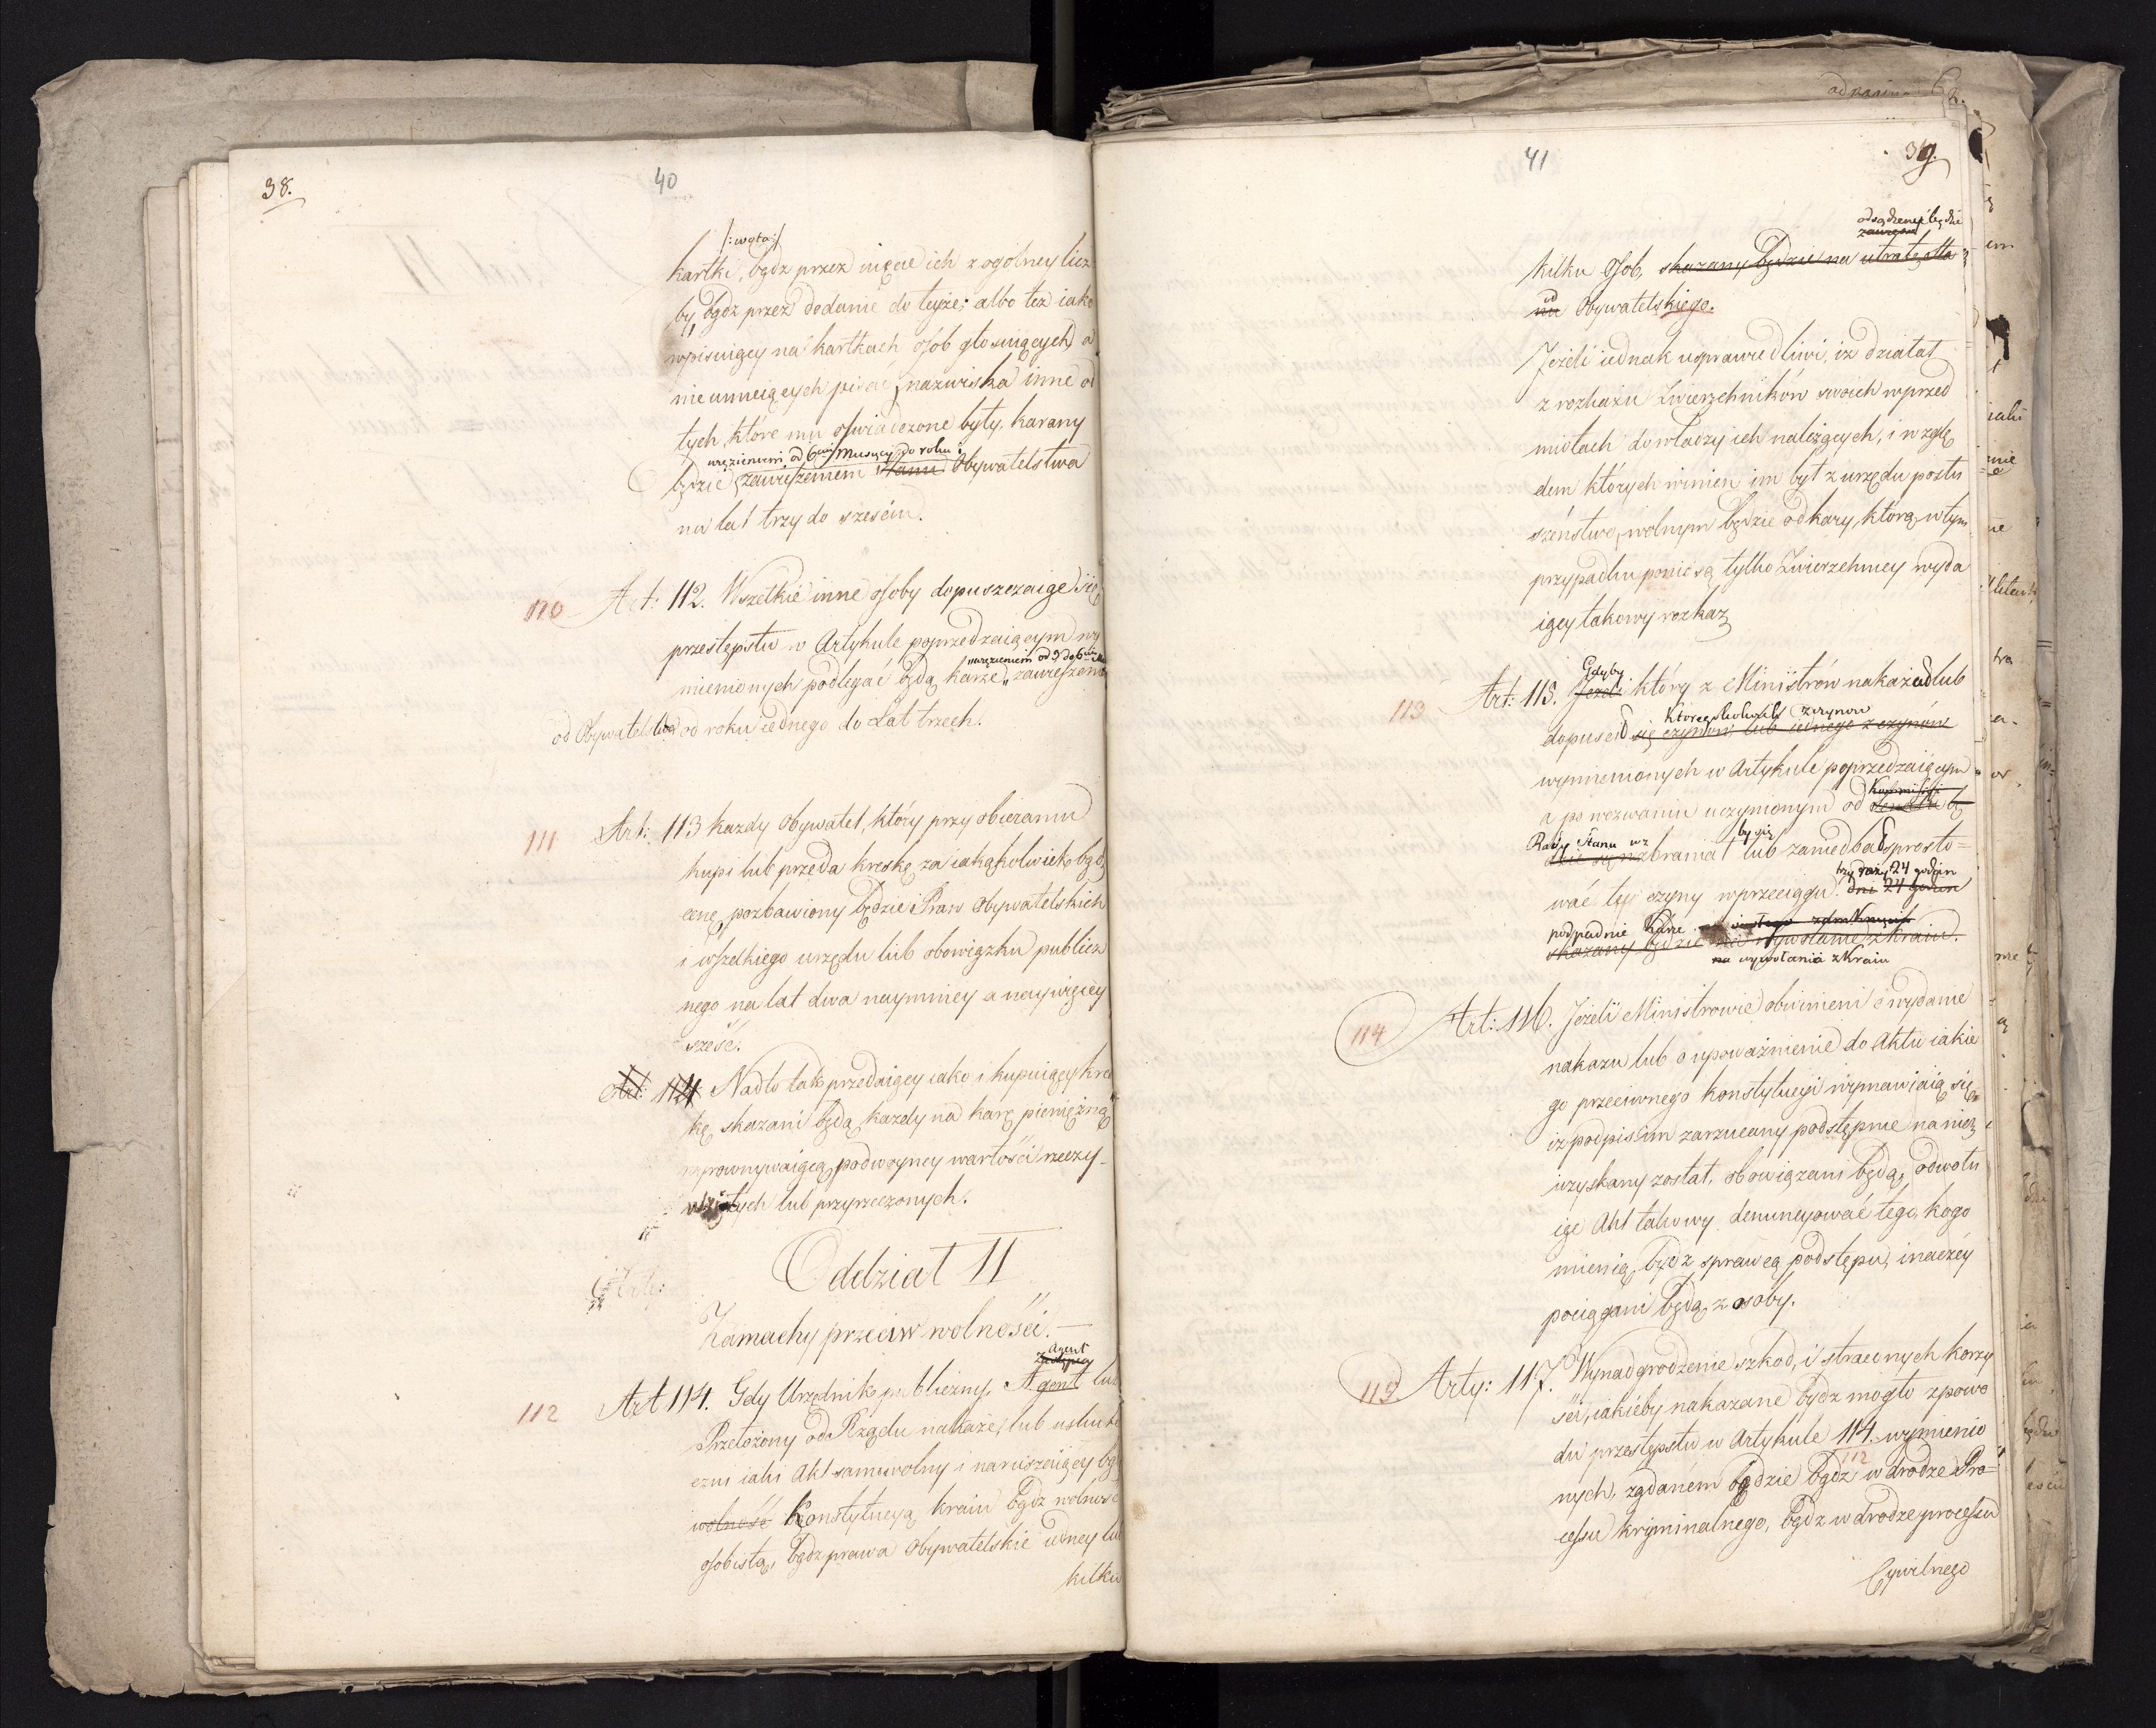 38.
40
/:wota:/
kartki, bądz przez uięcie ich z ogólney licz
by, bądz przez dodanie do teyże; albo tez iako
wpisuiący na kartkach osób głosuiących, a
nieumieiących pisać, nazwiska inne od
tych które mu oswiadczone były, karany
więzieniem od 6ciu Miesięcy do roku i
będzie zawieszeniem Stanu Obywatelstwa
na lat trzy do sześciu.
110 Art: 112. Wszelkie inne osoby dopuszczaiące się
przestępstw w Artykule poprzedzaiącym wy
więzieniem od 3 do 6ciu
mienionych podlegać będą karze zawieszenia
od Obywatelstwa od roku iednego do Lat trzech.
111 Art: 113 kazdy Obywatel, który przy obieraniu
kupi lub przeda kreskę za iakąkolwiek bądz
cenę pozbawiony będzie Praw Obywatelskich
i wszelkiego urzędu lub obowiązku publicz
nego na lat dwa naymniey a naywięcey
sześć.
Art: 114 Nadto tak przedaiący iako i kupuiący kres
kę skazani będą kazdy na karę pieniężną
wyrownywaiącą podwoyney wartości rzeczy
wziętych lub przyrzeczonych.
Oddział II
Zamachy przeciw wolności.
Agent
Zastępca
112 Art 114. Gdy Urzędnik publiczny, Agent lub
Przełożony od Rządu nakaże, lub uskute
czni iaki Akt samowolny i naruszaiący bądz
wolność Konstytucyą kraiu bądz wolność
osobistą, bądz prawa Obywatelskie iedney lub
kilku
41
39.
odsądzony będzie
kilku Osób, skazany będzie na utratę Sta
od
nu Obywatelskiego.
Jeżeli iednak usprawiedliwi, iż działał
z rozkazu Zwierzchników swoich wprzed
miotach do władzy ich należących, i wzglę
dem których winien im był z urzędu posłu
szeństwo, wolnym będzie od kary, którą w tym
przypadku poniosą tylko Zwierzchnicy wyda
iący takowy rozkaz
Gdyby
113 Art: 115. Jeżeli który z Ministrów nakazał lub
któregokolwiek z czynów
dopuścił się czynów, lub iednego z czynów
wymienionych w Artykule poprzedzaiącym
Kommissyi
a po wezwaniu uczynionym od Senatu
Rady Stanu wz by się
brania lub zaniedbał sprosto=
trzy razy 24 godzin
wać tey czyny wprzeciągu dni 24 godzin
podpadnie karze
skazany będzie na wywołanie z kraiu.
na wywołania z kraiu
114 Art: 116. Jeżeli Ministrowie obwinieni o wydanie
nakazu lub o upoważnienie do Aktu iakie
go przeciwnego konstytucyi wymawiaią się
iż podpis im zarzucany podstępnie na nich
uzyskany został, obowiązani będą, odwołu
iąc Akt takowy denuncyować tego, kogo
mienią bydz sprawcą podstępu, inaczéy
pociągani będą z osoby.
115 Arty: 117. Wynadgrodzenie szkod, i straconych korzy
ści, iakieby nakazane bydz mogło zpowo
du przestępstw w Artykule 114. wymienio
112
nych, żądaném będzie bądz w drodze Pro=
cessu kryminalnego, bądz w drodze processu
Cywilnego